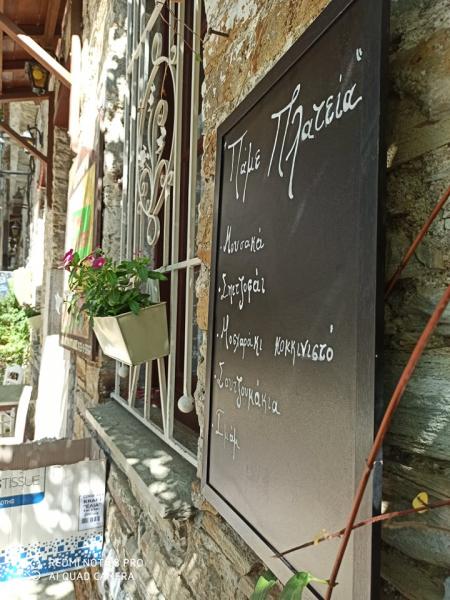 Πάμε Πλατεία"
· Μουσακά
· Σπετζοφάι
· Μοσχαράκι κοκκινιστό
· Σουτζουκάκια
· Ιμάμ
TISSUE
REDMI NOTE 8 PRO
AI QUAD CAMERA